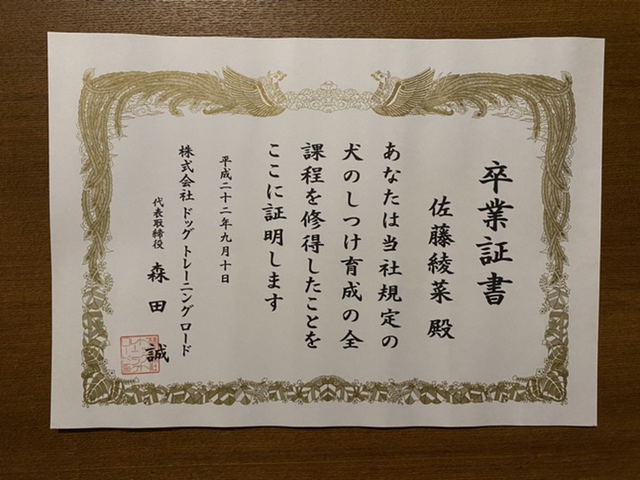 卒業証書
佐藤綾菜 殿
あなたは当社規定の
犬のしつけ育成の全
課程を修得したことを
ここに証明します
平成二十二年九月十日
株式会社 ドッグ トレーニング ロード
代表取締役 森田 誠